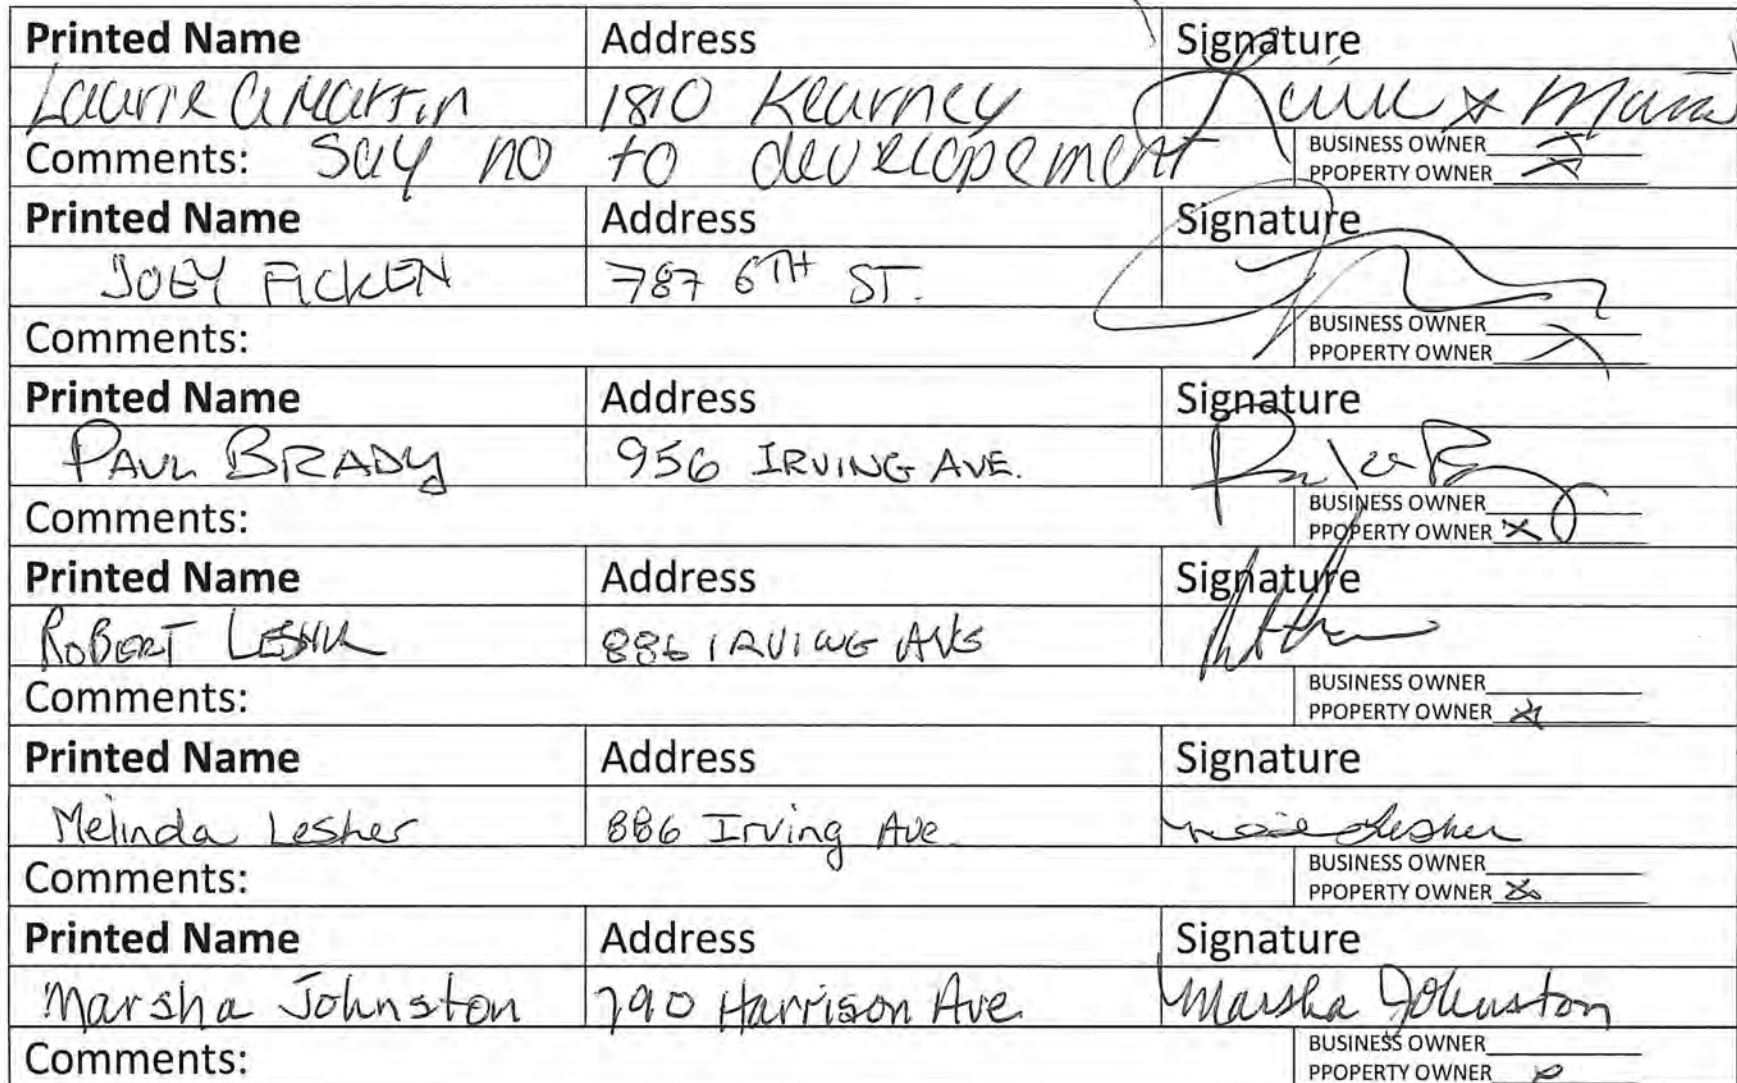 Printed Name Address Signature
Laurie A Martin 1810 Kearney
Comments: Say no to developement BUSINESS OWNER X
PPOPERTY OWNER X
Printed Name Address Signature
JOEY FICKEN 787 6TH ST.
Comments: BUSINESS OWNER
PPOPERTY OWNER X
Printed Name Address Signature
PAUL BRADY 956 IRVING AVE.
Comments: BUSINESS OWNER
PPOPERTY OWNER X
Printed Name Address Signature
ROBERT LESHER 886 IRVING AVE
Comments: BUSINESS OWNER
PPOPERTY OWNER X
Printed Name Address Signature
Melinda Lesher 886 Irving Ave. Lesher
Comments: BUSINESS OWNER
PPOPERTY OWNER X
Printed Name Address Signature
Marsha Johnston 790 Harrison Ave. Marsha Johnston
Comments: BUSINESS OWNER
PPOPERTY OWNER